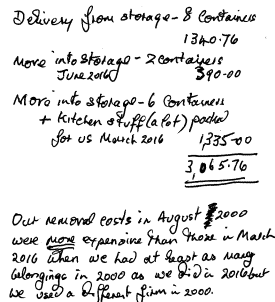 Delivery from storage - 8 Containers
1340.76
More into storage - 2 containers
June 2016 390-00
More into storage - 6 Containers
+ Kitchen stuff (a lot) packed
for us March 2016 1,335-00
3,065.76
Our removal costs in August 2000
were more expensive than those in March
2016 when we had at least as many
belongings in 2000 as we did in 2016 but
we used a different firm in 2000.